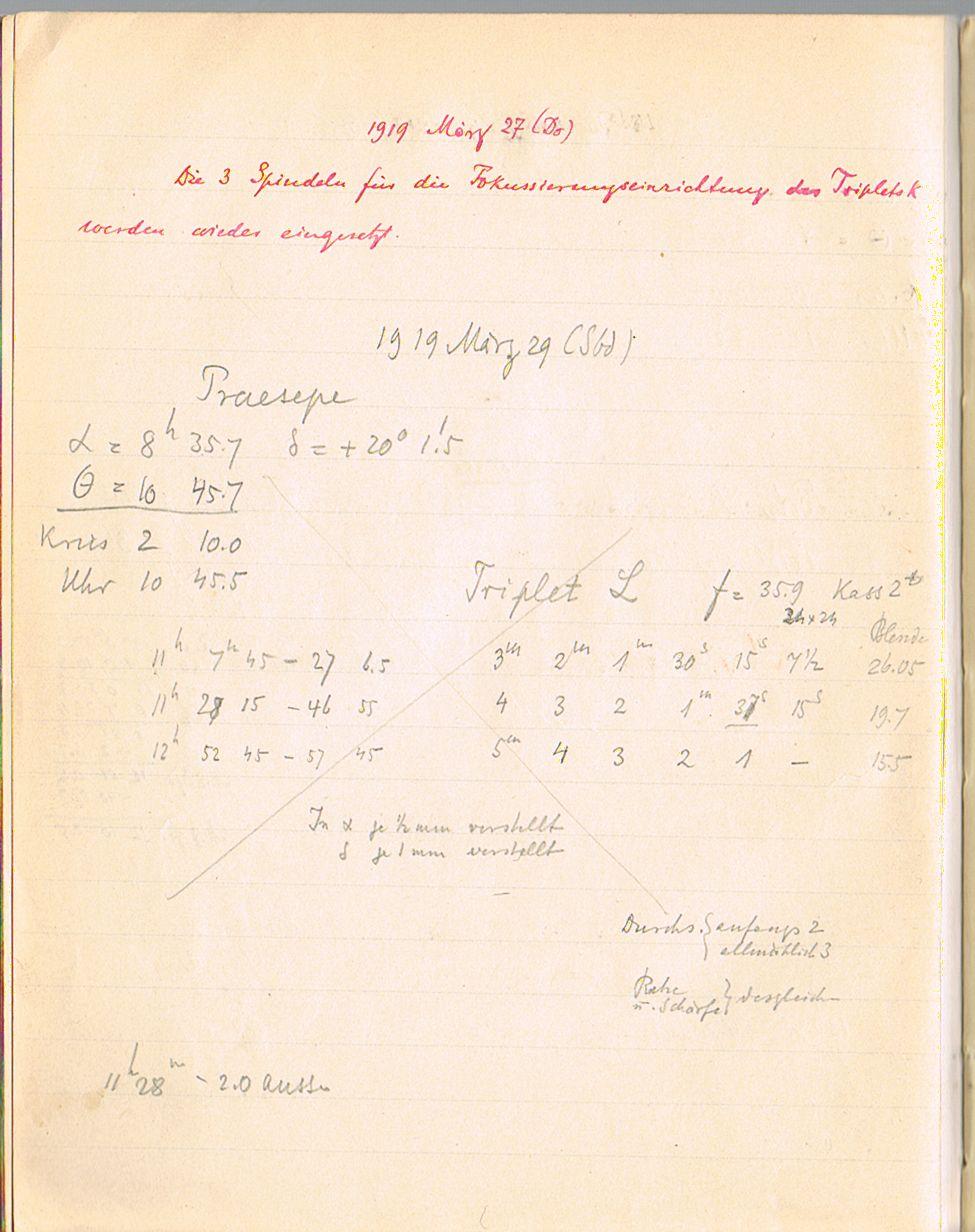 1919 März 27 (Do)
Die 3 Spindeln für die Fokussierungseinrichtung des Triplets K
werden wieder eingesetzt.
1919 März 29 (Sbd)
Praesepe
α = 8h 35.7 δ = +20° 1.'5
θ = 10 45.7
Kreis 2 10.0
Uhr 10 45.5
Triplet L f = 35.9 Kass 2
24x24 Blende
11h 7m 45 – 27 6.5 3m 2m 1m 30s 15s 7½ 26.05
11h 28 15 – 46 55 4 3 2 1m 37s 15s 19.7
12h 52 45 – 57 45 5m 4 3 2 1 – 15.5
In α je ½ mm verstellt
δ je 1 mm verstellt
Durchs. { anfangs 2
allmählich 3
Ruhe
u. Schärfe } desgleich
11h 28m – 2.0 aussen